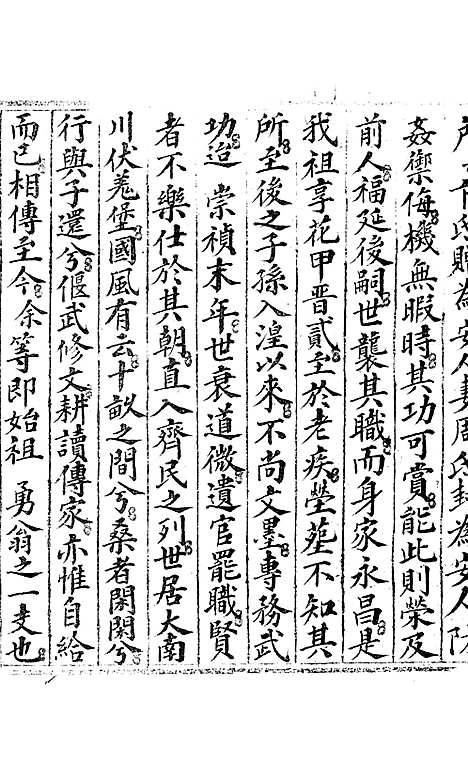 氏贈為安人妻周氏封為安人防
姦禦侮機無暇時其功可賞能此則榮及
前人福延後嗣世襲其職而身家永昌是
我祖享花甲晋貳至於老疾塋莝不知其
所至後之子孫入湟以來不尚文墨專務武
功迨 崇禎末年世衰道微遺官罷職賢
者不樂仕於其朝直入齊民之列世居大南
川伏羌堡國風有云十畝之間兮桑者閑閑兮
行與子還兮偃武修文耕讀傳家亦惟自給
而已相傳至今余等即始祖 勇翁之一支也